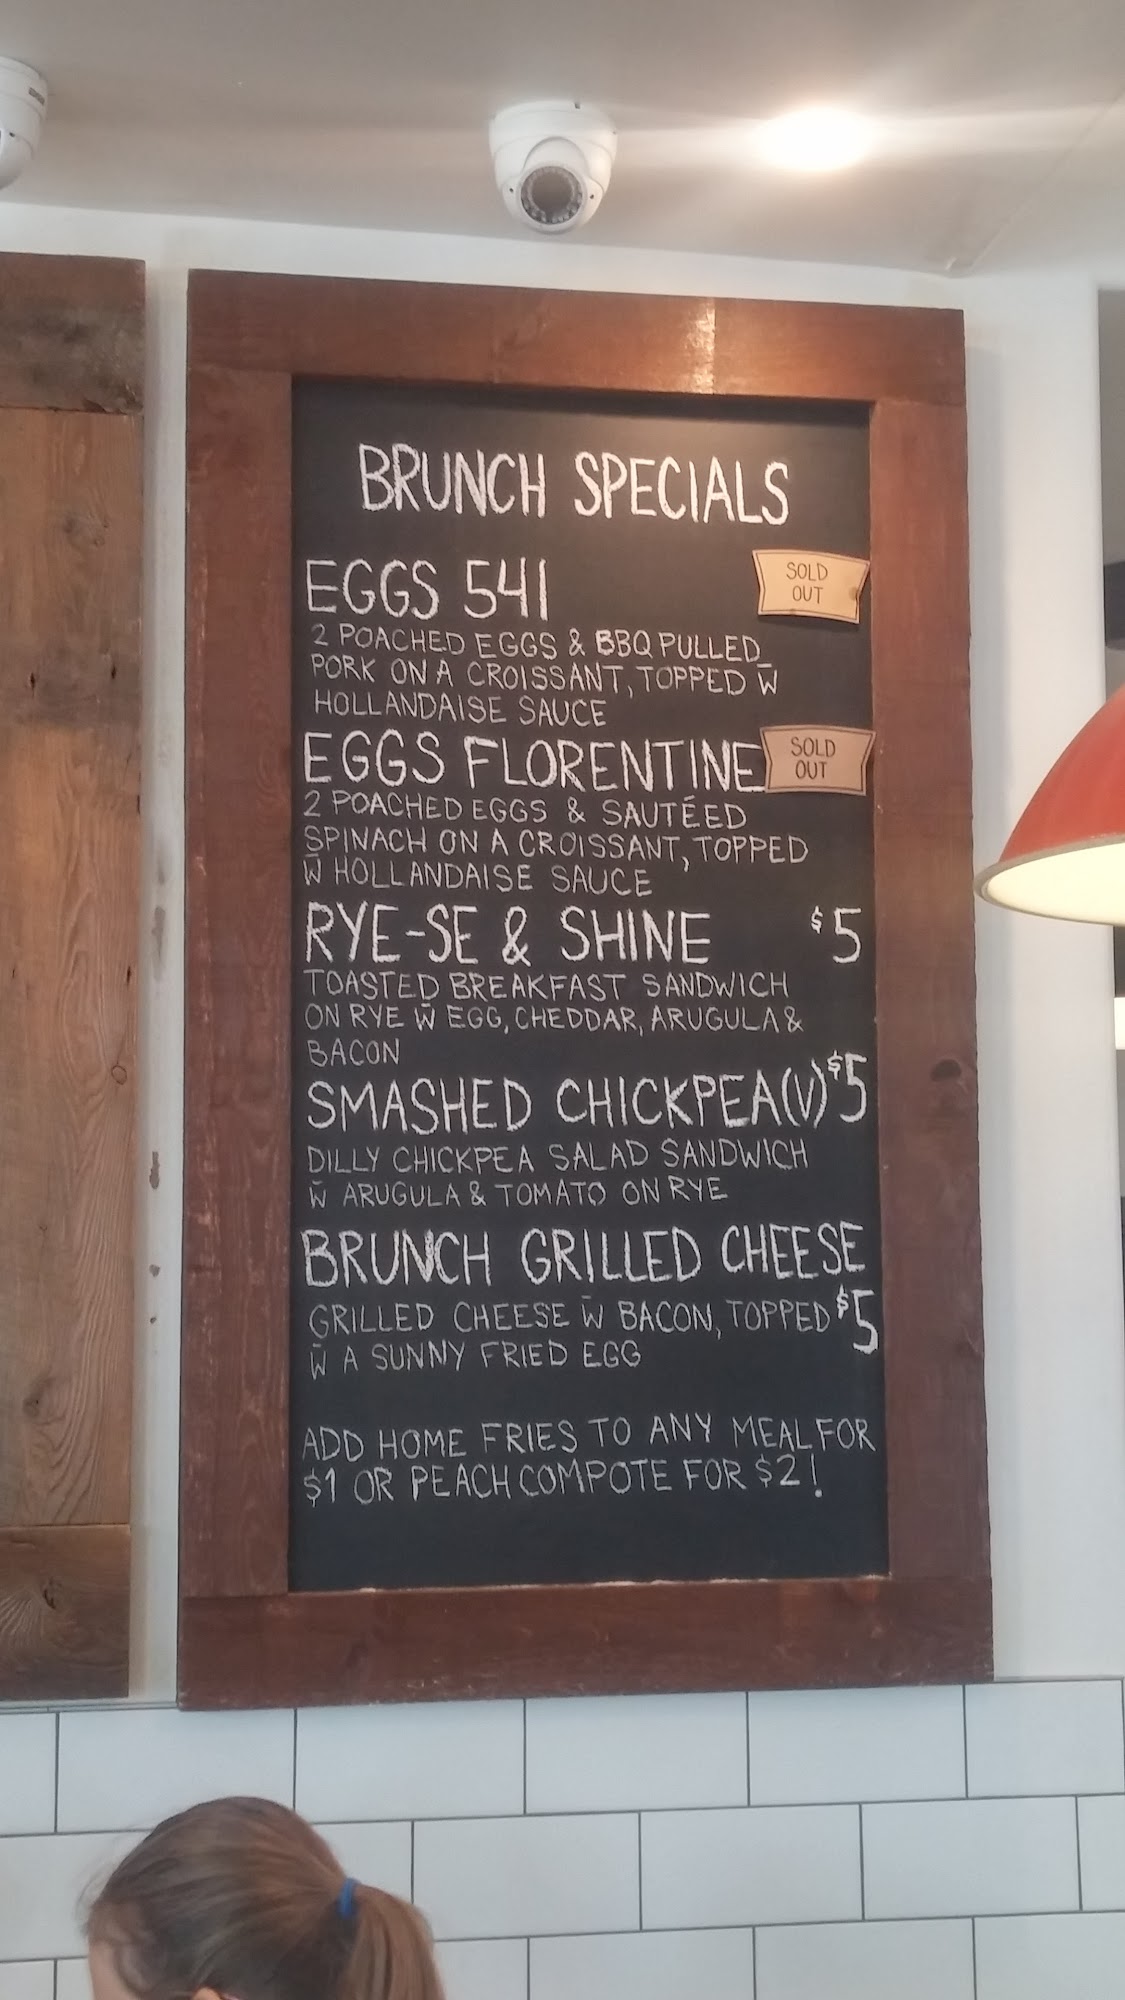 BRUNCH SPECIALS
EGGS 541 SOLD OUT
2 POACHED EGGS & BBQ PULLED
PORK ON A CROISSANT, TOPPED W̄
HOLLANDAISE SAUCE
EGGS FLORENTINE SOLD OUT
2 POACHED EGGS & SAUTÉED
SPINACH ON A CROISSANT, TOPPED
W̄ HOLLANDAISE SAUCE
RYE-SE & SHINE $5
TOASTED BREAKFAST SANDWICH
ON RYE W̄ EGG, CHEDDAR, ARUGULA &
BACON
SMASHED CHICKPEA (V) $5
DILLY CHICKPEA SALAD SANDWICH
W̄ ARUGULA & TOMATO ON RYE
BRUNCH GRILLED CHEESE
GRILLED CHEESE W̄ BACON, TOPPED $5
W̄ A SUNNY FRIED EGG
ADD HOME FRIES TO ANY MEAL FOR
$1 OR PEACH COMPOTE FOR $2!